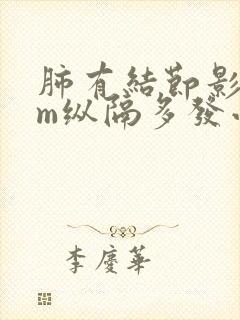 肺有結節影
m纵隔多發
李慶華